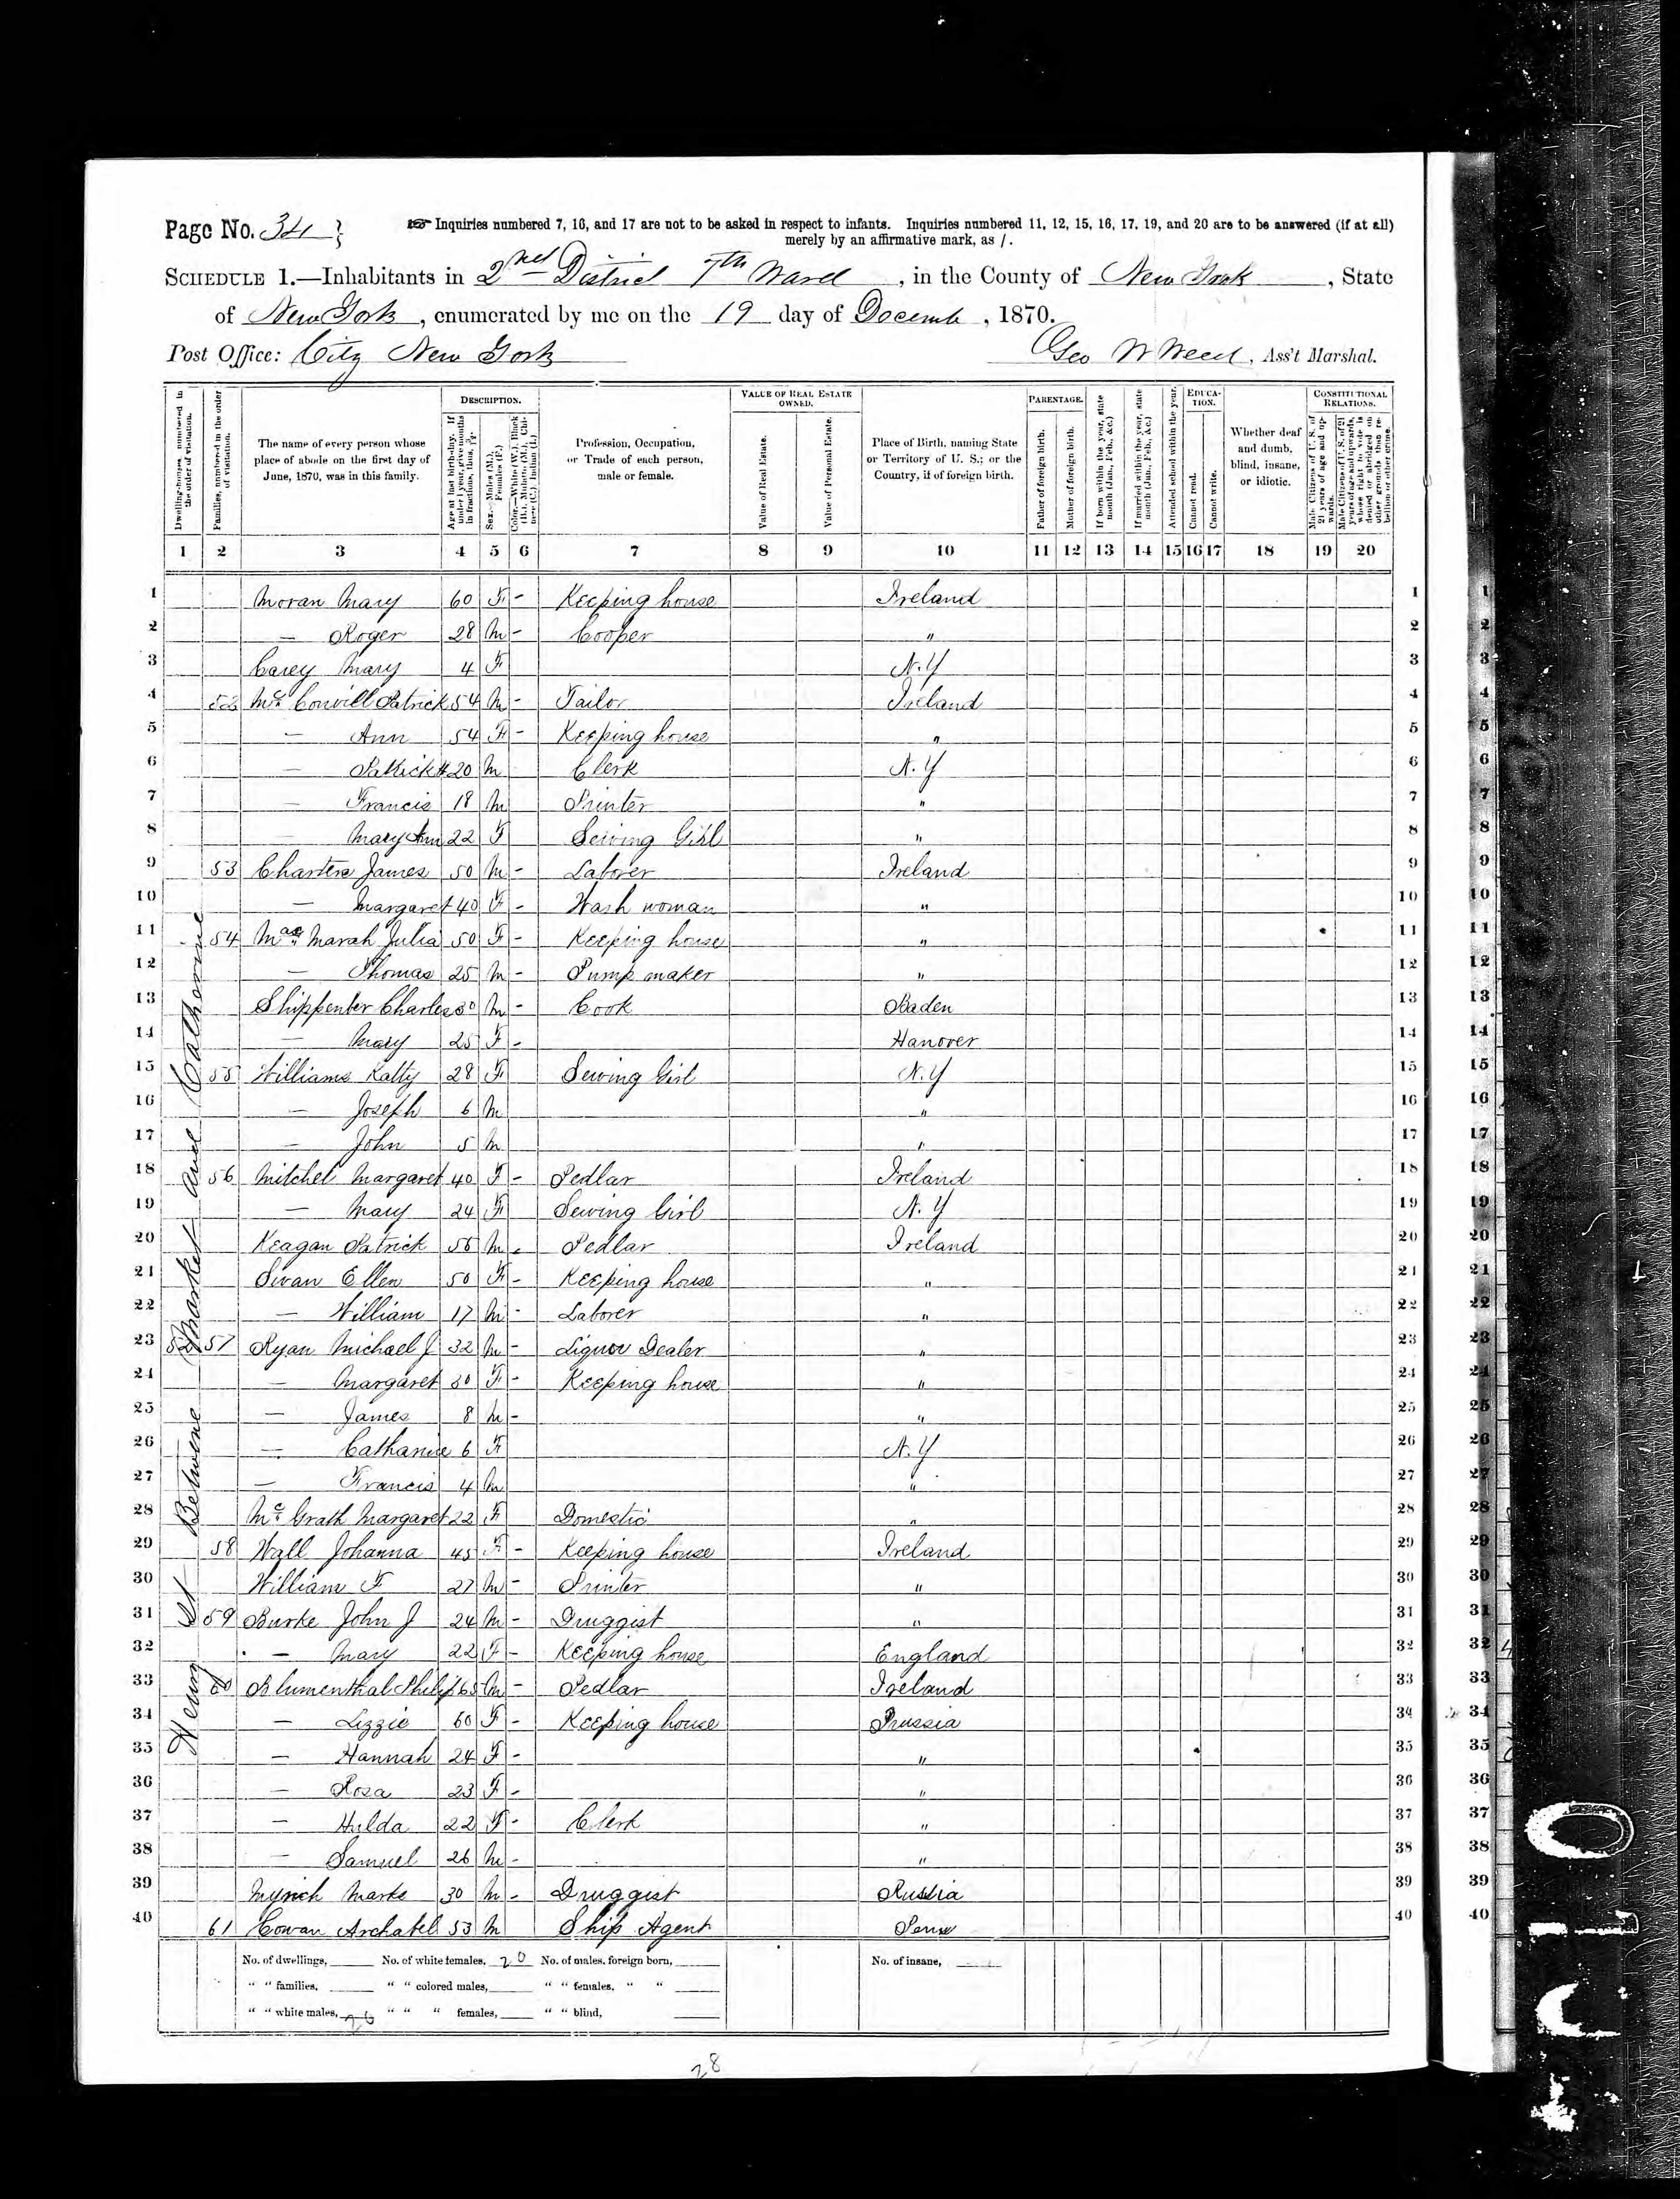 Page No. 34
Inquiries numbered 7, 16, and 17 are not to be asked in respect to infants. Inquiries numbered 11, 12, 15, 16, 17, 19, and 20 are to be answered (if at all)
merely by an affirmative mark, as /.
SCHEDULE 1.—Inhabitants in 2nd District 7th Ward, in the County of New York, State
of New York, enumerated by me on the 19 day of Decemb, 1870.
Post Office: City New York Geo W Weed, Ass't Marshal.
Dwelling-houses, numbered in the order of visitation.
Families, numbered in the order of visitation.
The name of every person whose place of abode on the first day of June, 1870, was in this family.
DESCRIPTION.
Age at last birth-day. If under 1 year, give months in fractions, thus, 3/12.
Sex.—Males (M.), Females (F.)
Color.—White (W.), Black (B.), Mulatto (M.), Chinese (C.), Indian (I.)
Profession, Occupation, or Trade of each person, male or female.
VALUE OF REAL ESTATE OWNED.
Value of Real Estate.
Value of Personal Estate.
Place of Birth, naming State or Territory of U. S.; or the Country, if of foreign birth.
PARENTAGE.
Father of foreign birth.
Mother of foreign birth.
If born within the year, state month (Jan., Feb., &c.)
If married within the year, state month (Jan., Feb., &c.)
Attended school within the year.
EDUCATION.
Cannot read.
Cannot write.
Whether deaf and dumb, blind, insane, or idiotic.
CONSTITUTIONAL RELATIONS.
Male Citizens of U. S. of 21 years of age and upwards.
Male Citizens of U. S. of 21 years of age and upwards, whose right to vote is denied or abridged on other grounds than rebellion or other crime.
1 2 3 4 5 6 7 8 9 10 11 12 13 14 15 16 17 18 19 20
1 Moran Mary 60 F - Keeping house Ireland 1 1
2 — Roger 28 M - Cooper " 2 2
3 Carey Mary 4 F N.Y 3 3
4 52 Mc Convill Patrick 54 M - Tailor Ireland 4 4
5 — Ann 54 F - Keeping house " 5 5
6 — Patrick H 20 M Clerk N.Y 6 6
7 — Francis 18 M Printer " 7 7
8 — Mary Ann 22 F Sewing Girl " 8 8
9 53 Charters James 50 M - Laborer Ireland 9 9
10 — Margaret 40 F - Wash woman " 10 10
11 54 Mac Marah Julia 50 F - Keeping house " 11 11
12 — Thomas 25 M - Pump maker " 12 12
13 Shippenber Charles 30 M - Cook Baden 13 13
14 — Mary 25 F - Hanover 14 14
15 55 Williams Katty 28 F Sewing Girl N.Y 15 15
16 — Joseph 6 M " 16 16
17 — John 5 M " 17 17
18 56 Mitchel Margaret 40 F - Pedlar Ireland 18 18
19 — Mary 24 F Sewing Girl N.Y 19 19
20 Keagan Patrick 56 M - Pedlar Ireland 20 20
21 Swan Ellen 50 F - Keeping house " 21 21
22 — William 17 M - Laborer " 22 22
23 52 57 Ryan Michael J 32 M - Liquor Dealer " 23 23
24 — Margaret 30 F - Keeping house " 24 24
25 — James 8 M - " 25 25
26 — Catharine 6 F N.Y 26 26
27 — Francis 4 M " 27 27
28 Mc Grath Margaret 22 F Domestic " 28 28
29 58 Wall Johanna 45 F - Keeping house Ireland 29 29
30 William F 27 M - Printer " 30 30
31 59 Burke John J 24 M - Druggist " 31 31
32 — Mary 22 F - Keeping house England 32 32
33 60 Blumenthal Philip 65 M - Pedlar Ireland 33 33
34 — Lizzie 60 F - Keeping house Prussia 34 34
35 — Hannah 24 F - " 35 35
36 — Rosa 23 F - " 36 36
37 — Hulda 22 F - Clerk " 37 37
38 — Samuel 26 M - " 38 38
39 Marks 30 M - Druggist Russia 39 39
40 61 Cowan Archabel 53 M Ship Agent Penn 40 40
Henry St Betweene Market and Catherine
No. of dwellings, No. of white females, 20 No. of males, foreign born, No. of insane,
" " families, " " colored males, " " females, " "
" " white males, 20 " " " females, " " blind,
28